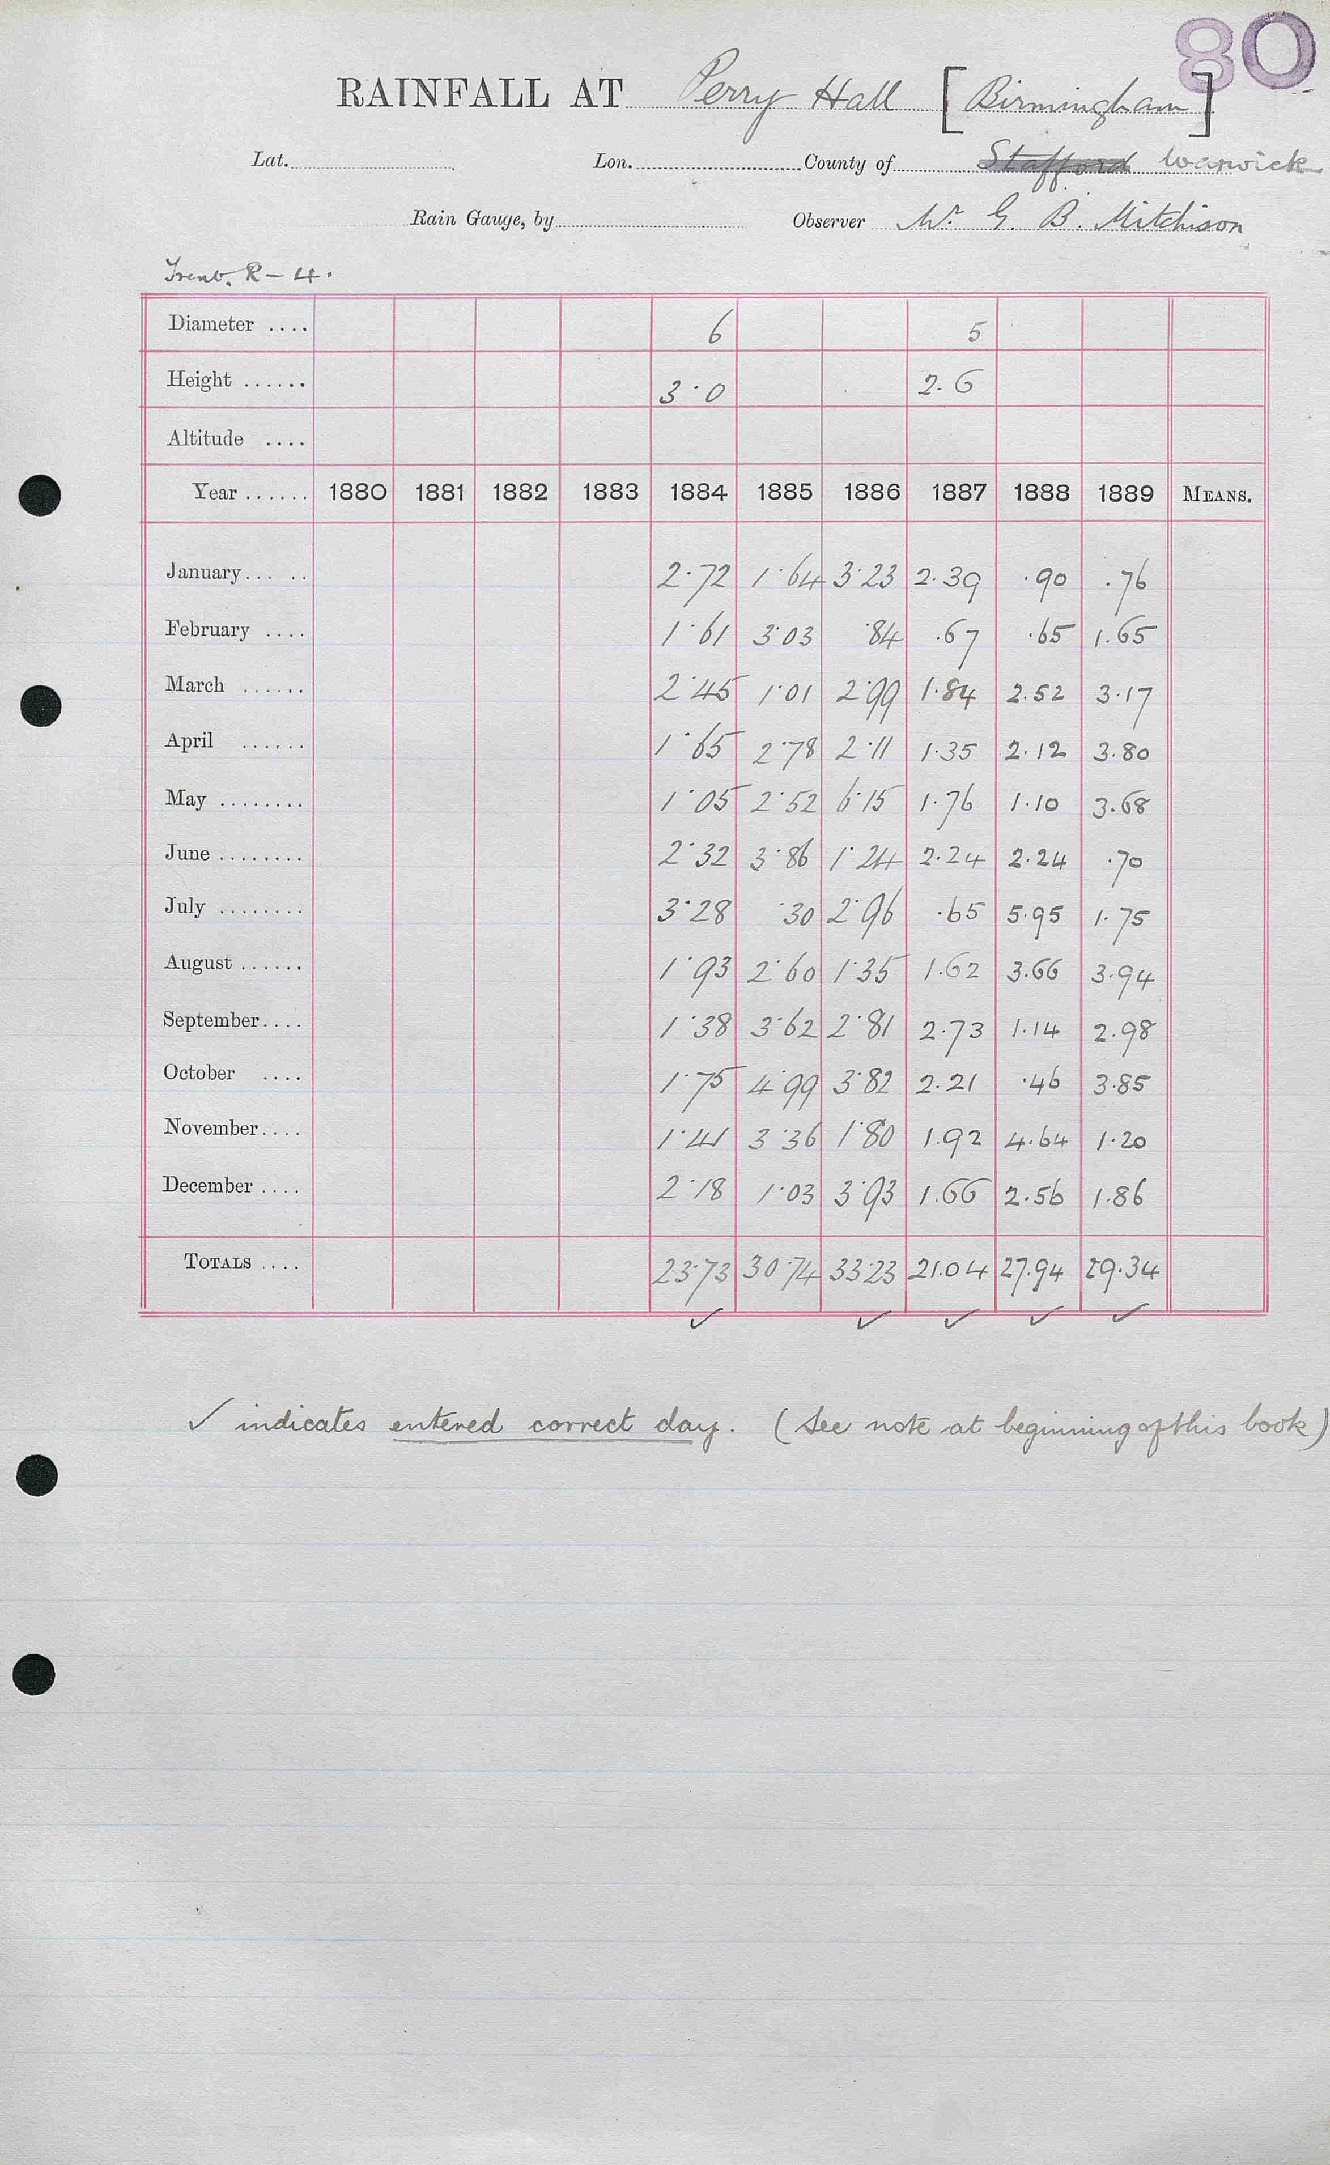 80
RAINFALL AT Perry Hall [Birmingham]
Lat. Lon. County of Stafford Warwick
Rain Gauge, by Observer Mr. G. B. Mitchison
Trent. R - 4.
Diameter .... 6 5
Height ...... 3.0 2.6
Altitude ....
Year ...... 1880 1881 1882 1883 1884 1885 1886 1887 1888 1889 MEANS.
January... .. 2.72 1.64 3.23 2.39 .90 .76
February .... 1.61 3.03 .84 .67 .65 1.65
March ...... 2.45 1.01 2.99 1.84 2.52 3.17
April ...... 1.65 2.78 2.11 1.35 2.12 3.80
May ........ 1.05 2.52 6.15 1.76 1.10 3.68
June ........ 2.32 3.86 1.24 2.24 2.24 .70
July ........ 3.28 .30 2.96 .65 5.95 1.75
August ...... 1.93 2.60 1.35 1.62 3.66 3.94
September.... 1.38 3.62 2.81 2.73 1.14 2.98
October .... 1.75 4.99 3.82 2.21 .46 3.85
November.... 1.41 3.36 1.80 1.92 4.64 1.20
December .... 2.18 1.03 3.93 1.66 2.56 1.86
TOTALS .... 23.73 30.74 33.23 21.04 27.94 29.34
✓ ✓ ✓ ✓ ✓
✓ indicates entered correct day. (See note at beginning of this book)